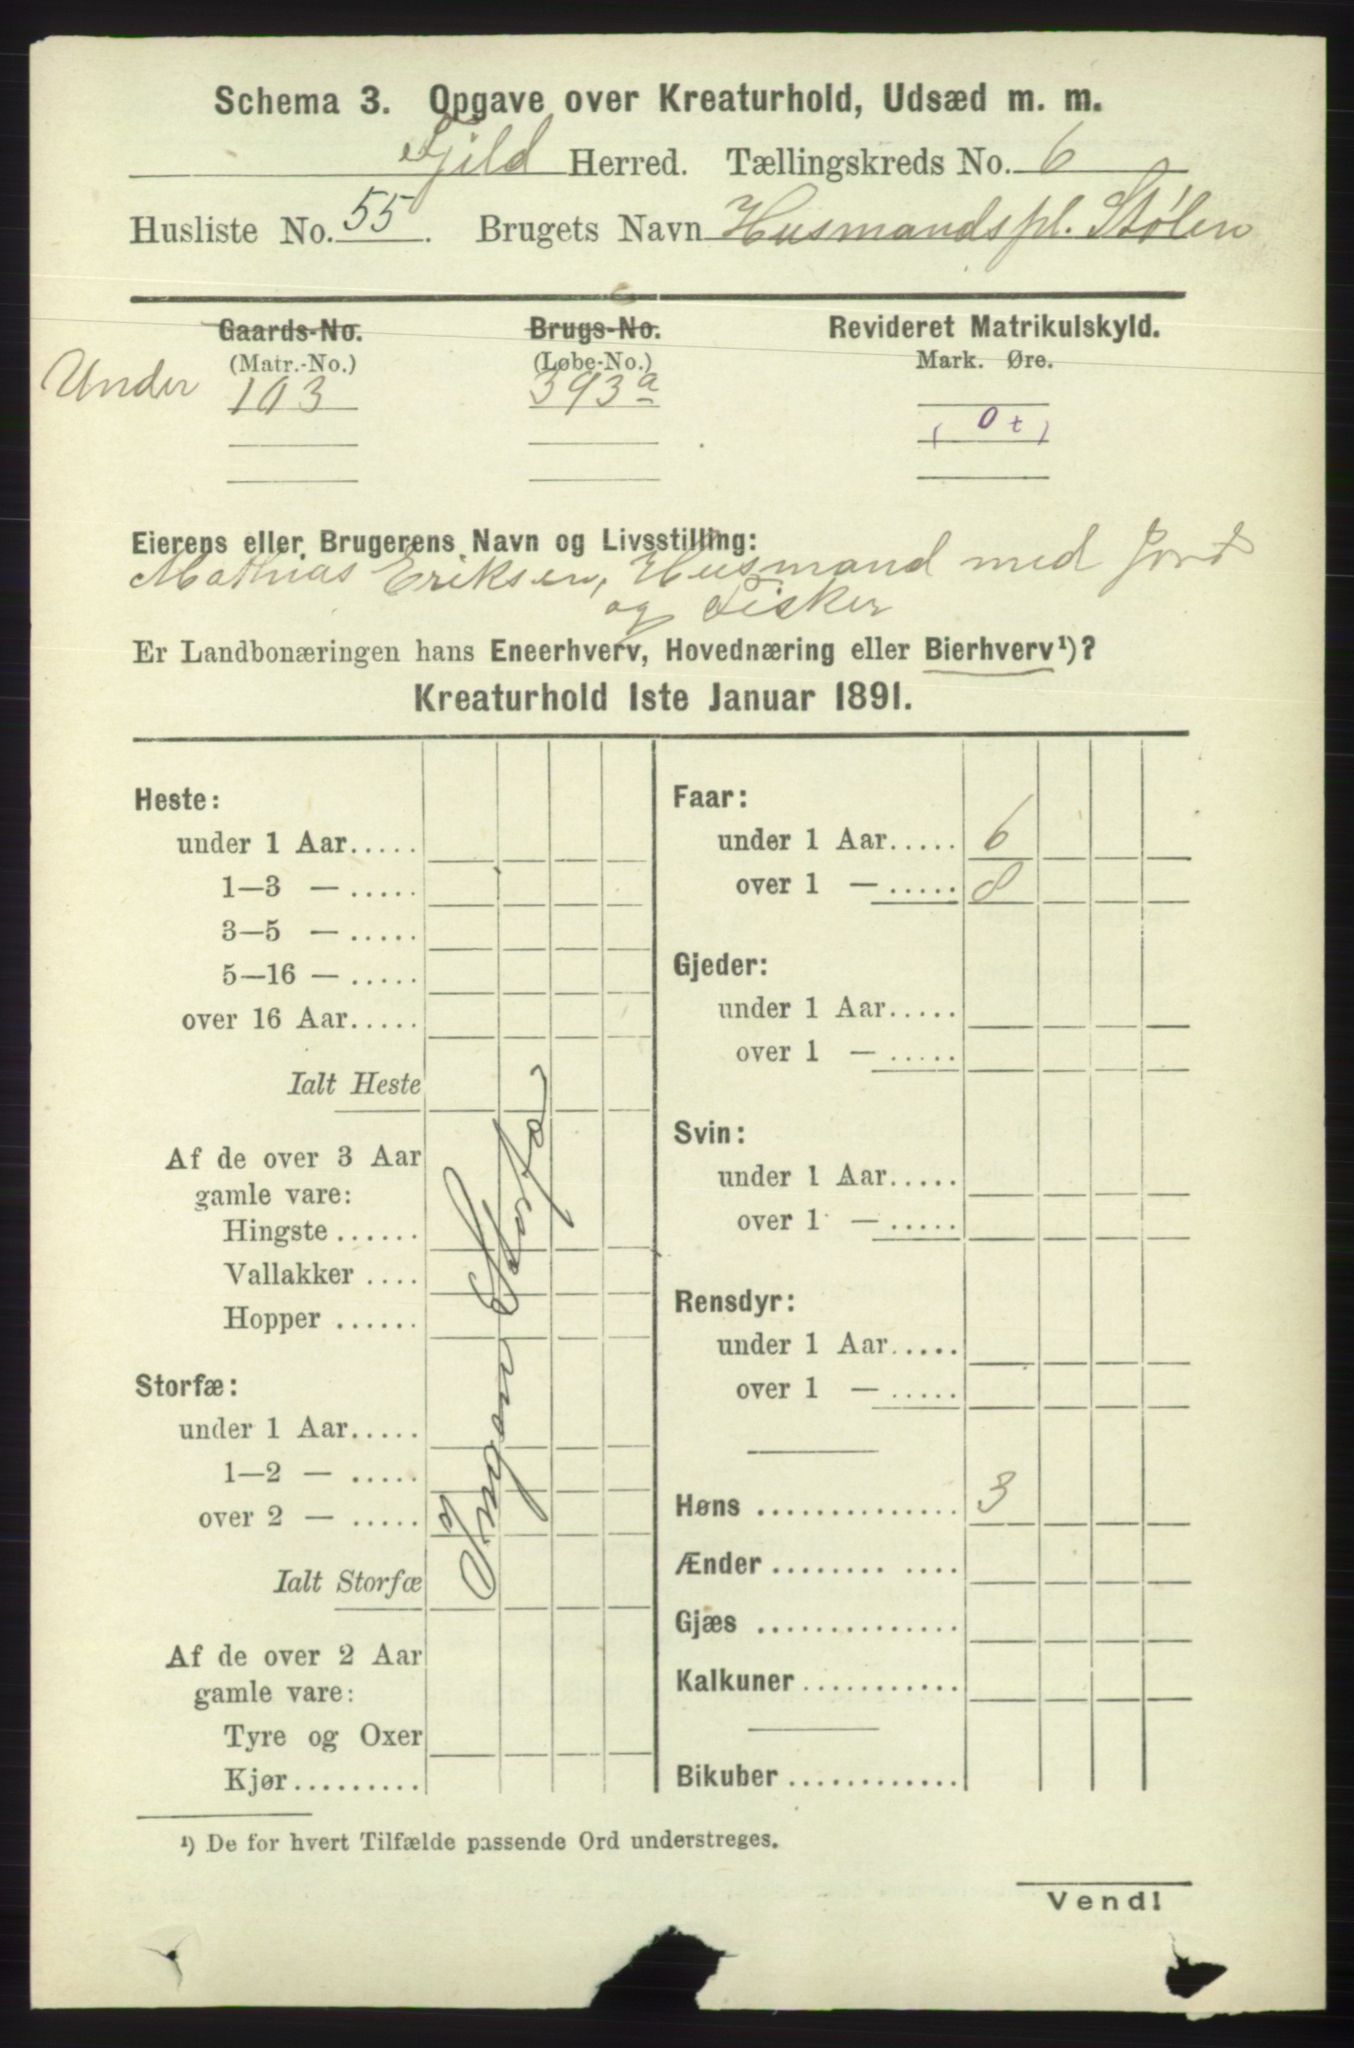 Schema 3. Opgave over Kreaturhold, Udsæd m. m.
Fjeld Herred. Tællingskreds No. 6
Husliste No. 55. Brugets Navn Husmandspl. Stølen
Gaards-No. Brugs-No. Revideret Matrikulskyld.
(Matr.-No.) (Løbe-No.) Mark. Øre.
Under 103 393a
( 0 t )
Eierens eller Brugerens Navn og Livsstilling:
Mathias Eriksen, Husmand med Jord
og Fisker
Er Landbonæringen hans Eneerhverv, Hovednæring eller Bierhverv¹)?
Kreaturhold 1ste Januar 1891.
Heste:
under 1 Aar.....
1—3 — .....
3—5 — .....
5—16 — .....
over 16 Aar.....
Ialt Heste
Af de over 3 Aar
gamle vare:
Hingste ......
Vallakker ....
Hopper ......
Storfæ:
under 1 Aar.....
1—2 — .....
over 2 — .....
Ialt Storfæ
Af de over 2 Aar
gamle vare:
Tyre og Oxer
Kjør.........
Ingen Storfæ
Faar:
under 1 Aar..... 6
over 1 — ..... 8
Gjeder:
under 1 Aar.....
over 1 — .....
Svin:
under 1 Aar.....
over 1 — .....
Rensdyr:
under 1 Aar.....
over 1 — .....
Høns .............. 3
Ænder ........ ....
Gjæs ..............
Kalkuner ...........
Bikuber .............
¹) De for hvert Tilfælde passende Ord understreges.
Vend!